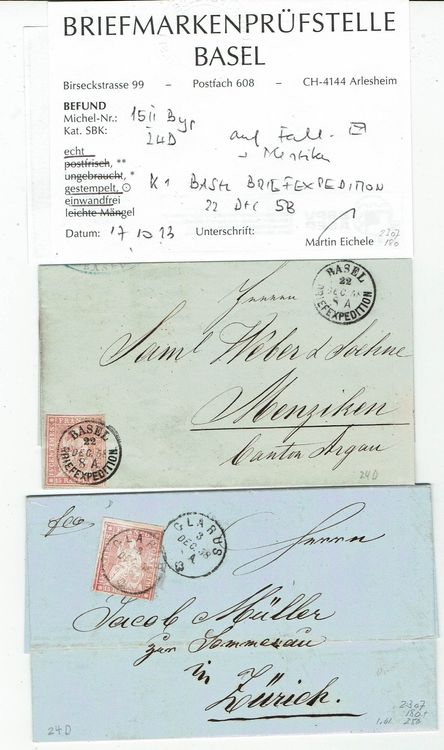 BRIEFMARKENPRÜFSTELLE
BASEL
Birseckstrasse 99 – Postfach 608 – CH-4144 Arlesheim
BEFUND
Michel-Nr.: 15 II Byr
Kat. SBK: 24D
auf Fall.
echt
postfrisch, **
ungebraucht, *
gestempelt, ⊙
einwandfrei
leichte Mängel
K1 BASEL BRIEFEXPEDITION
22 DEC 58
Datum: 17 10 13 Unterschrift:
Martin Eichele
2307
180
BASEL
BASEL
22
DEC. 58
8 A
BRIEFEXPEDITION
Herren
Saml Weber & Soehne
Menziken
Canton Argau
BASEL
22
DEC. 58
8 A
BRIEFEXPEDITION
24D
GLARUS
3
DEC. 58
GLARUS
Herrn
Jacob Müller
zur Sommerau
in
Zürich.
24D
2307